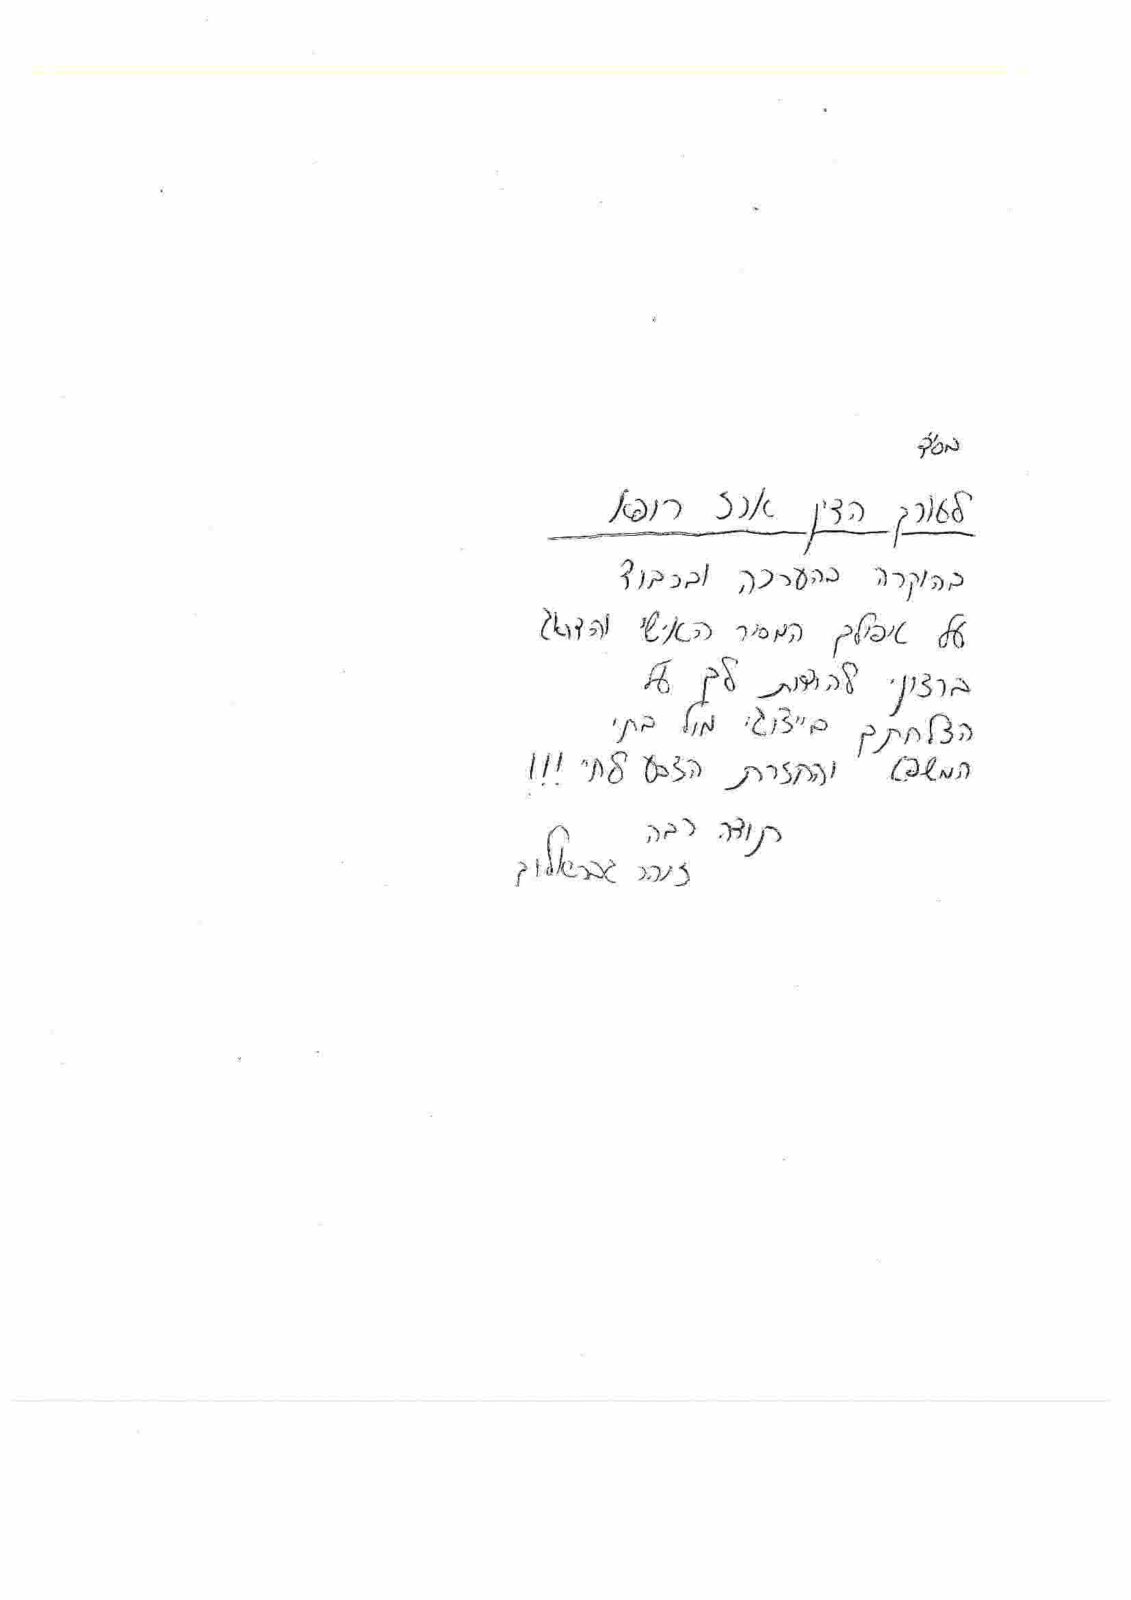 בס"ד
לעורך הדין ארז רופא
בהוקרה בהערכה ובכבוד
על טיפולך המסור האישי והדואג
ברצוני להודות לך על
הצלחתך בייצוגי מול בתי
המשפט והחזרת הצבע לחיי !!!
תודה רבה